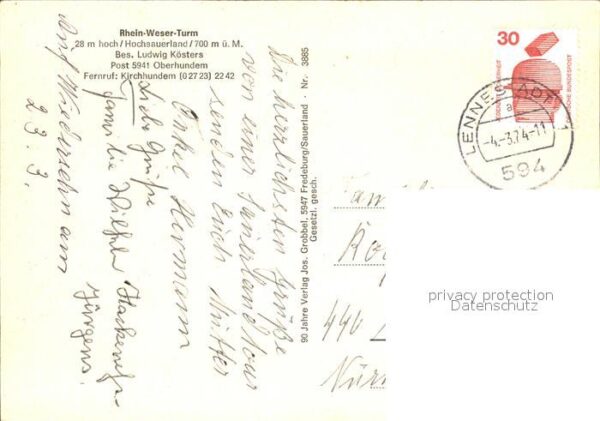 Rhein-Weser-Turm
28 m hoch / Hochsauerland / 700 m ü. M.
Bes. Ludwig Kösters
Post 5941 Oberhundem
Fernruf: Kirchhundem (0 27 23) 22 42
Die herzlichsten Grüße
von einer Sauerlandtour
senden Euch Mutter
Onkel Hermann
Liebe Grüße
Familie Wilfried
Jürgens
Auf Wiedersehn am
23. 3.
90 Jahre Verlag Jos. Grobbel, 5947 Fredeburg/Sauerland - Nr. 3885
Gesetzl. gesch.
30
DEUTSCHE BUNDESPOST
LENNESTADT 1
a
-4.-3.74-11
594
Familie
440
privacy protection
Datenschutz